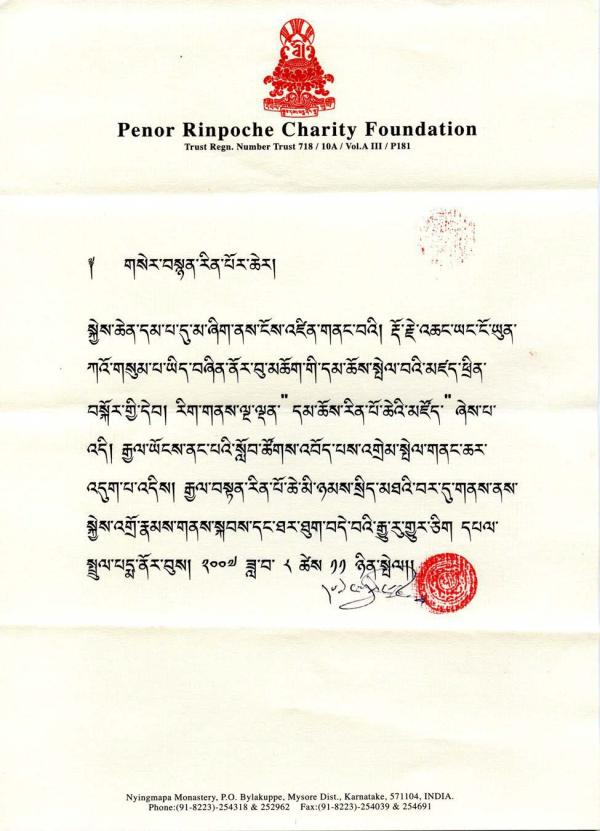 Penor Rinpoche Charity Foundation
Trust Regn. Number Trust 718 / 10A / Vol.A III / P181
༈ གསེར་བསྙན་རིན་པོར་ཆེར།
སྐྱེས་ཆེན་དམ་པ་དུ་མ་ཞིག་ནས་ངོས་འཛིན་གནང་བའི། རྡོ་རྗེ་འཆང་ཡང་ངོ་ཡུན་
ཀའོ་གསུམ་པ་ཡིད་བཞིན་ནོར་བུ་མཆོག་གི་དམ་ཆོས་སྤེལ་བའི་མཛད་ཕྲིན་
བསྐོར་གྱི་དེབ། རིག་གནས་ལྔ་ལྡན་"དམ་ཆོས་རིན་པོ་ཆེའི་མཛོད་"ཞེས་པ་
འདི། རྒྱལ་ཡོངས་ནང་པའི་སློབ་ཚོགས་འབོད་པས་འགྲེམ་སྤེལ་གནང་ཆར་
འདུག་པ་འདིས། རྒྱལ་བསྟན་རིན་པོ་ཆེ་མི་ཉམས་སྲིད་མཐའི་བར་དུ་གནས་ནས་
སྐྱེས་འགྲོ་རྣམས་གནས་སྐབས་དང་ཐར་ཐུག་བདེ་བའི་རྒྱུ་རུ་གྱུར་ཅིག དཔལ་
སྤྲུལ་པདྨ་ནོར་བུས། ༢༠༠༧ ཟླ་བ་ ༨ ཚེས་ ༡༡ ཉིན་སྤེལ།།
Nyingmapa Monastery, P.O. Bylakuppe, Mysore Dist., Karnatake, 571104, INDIA.
Phone:(91-8223)-254318 & 252962 Fax:(91-8223)-254039 & 254691